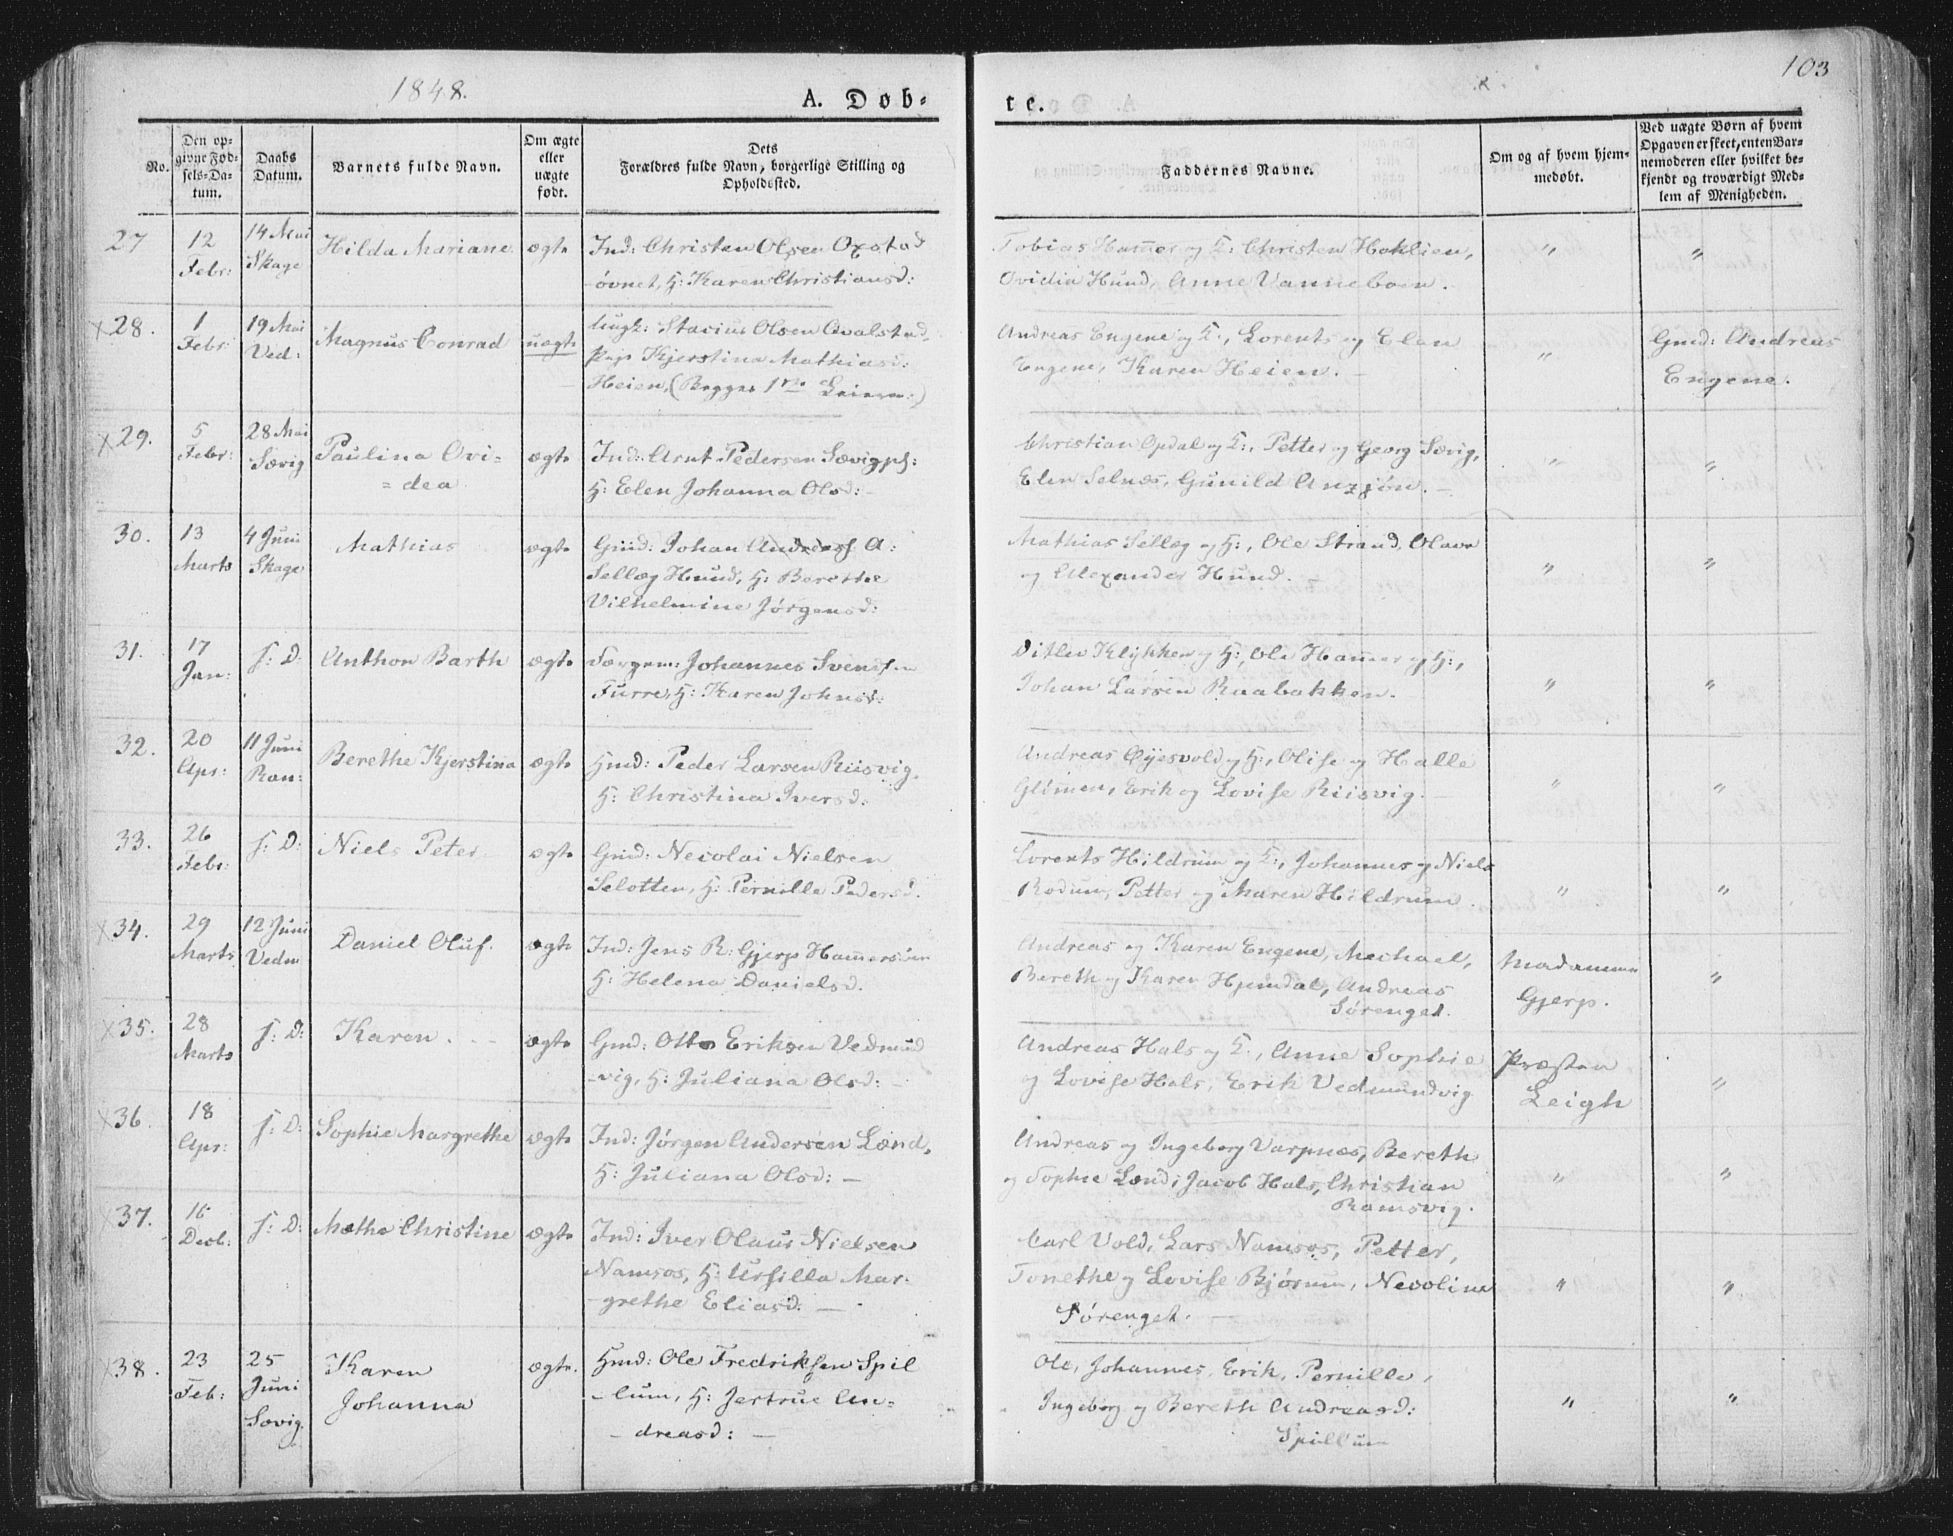 1848.
A. Døb-
te.
103
No.
Den op-
givne Fød-
sels-Da-
tum.
Daabs
Datum.
Barnets fulde Navn.
Om ægte
eller
uægte
født.
Dets
Forældres fulde Navn, borgerlige Stilling og
Opholdssted.
Faddernes Navne.
Om og af hvem hjem-
medøbt.
Ved uægte Børn af hvem
Opgaven er skeet, enten Bar-
nemoderen eller hvilket be-
kjendt og troværdigt Med-
lem af Menigheden.
27
12
Febr:
14 Mai
Skage
Hilda Mariane
ægte
Ind: Christen Olsen Oxstad
-øvnet, H: Karen Christiansd:
Tobias Hammer og K: Christen Haklien,
Ovidia Hund, Anne Vanneboen.
"
"
x28.
1
Febr:
19 Mai
Ved:
Magnus Conrad
uægte
Ungk: Stacius Olsen Avalstad,
Pige Kjerstina Mathiasd:
Heien, (Begges 1ste Leierm:)
Andreas Engene og K., Lorents og Elen
Engene, Karen Heien. -
"
Gmd: Andreas
Engene.
x29.
5
Febr:
28 Mai
Sævig
Paulina Ovi=
=dea
ægte
Ind: Arnt Pedersen Sævigpl:
H: Elen Johanna Olsd: -
Christian Opdal og K:, Petter og Georg Sævig,
Elen Selnæs, Gunild Anzjøn. -
"
"
30.
13
Marts
4 Juni
Skage
Mathias
ægte
Gmd: Johan Andreas A:
Sellæg Hund, H: Berethe
Vilhelmine Jørgensd:
Mathias Sellæg og H:, Ole Strand, Olava
og Alexander Hund.
"
"
31.
17
Jan:
s: D:
Anthon Barth
ægte
Sergem: Johannes Svends.
Furre, H: Karen Johnsd:
Ditlev Klykken og H:, Ole Hammer og H:,
Johan Larsen Raabakken.
"
"
32.
20
Apr:
11 Juni
Ran:
Berethe Kjerstina
ægte
Hmd: Peder Larsen Riisvig,
H: Christina Iversd.
Andreas Øyesvold og H:, Olise og Halle
Glømen, Erik og Lovise Riisvig. -
"
"
33.
26
Febr:
s: D:
Niels Peter
ægte
Gmd: Necolai Nielsen
Selotten, H: Pernille Pedersd.
Lorents Hildrum og K:, Johannes og Niels
Rodum, Petter og Maren Hildrum.
"
"
34.
29
Marts
12 Juni
Vedm
Daniel Oluf.
ægte
Ind: Jens R: Gjerp Hammersøen
H: Helena Danielsd.
Andreas og Karen Engene, Mechael,
Bereth og Karen Hjemdal, Andreas
Sørenget.
Madamme
Gjerp.
"
x35.
28
Marts
s: D:
Karen.
ægte
Gmd: Otto Eriksen Vedmund
-vig, H: Juliana Olsd: -
Andreas Hals og K., Anne Sophie
og Lovise Hals, Erik Vedmundvig
Præsten
Leigh
"
x36.
18
Apr:
s: D:
Sophie Margrethe
ægte
Ind: Jørgen Andersen Lænd,
H: Juliana Olsd: -
Andreas og Ingeborg Varpnæs, Bereth
og Sophie Lænd, Jacob Hals, Christian
Ramsvig.
"
"
x37.
16
Decb:
s: D:
Mæthe Christine
ægte
Ind: Iver Olaus Nielsen
Namsos, H: Ursilla Mar-
-grethe Eliasd: -
Carl Vold, Lars Namsos, Petter,
Tonethe og Lovise Bjørum, Necoline
Sørenget. -
"
"
x38.
23
Feb:
25
Juni
Sævig.
Karen
Johanna
ægte.
Hmd: Ole Fredriksen Spil
-lum, H: Jertrue An-
-dreasd: -
Ole, Johannes, Erik, Pernille,
Ingeborg og Bereth Andreasd:
Spillum
"
"